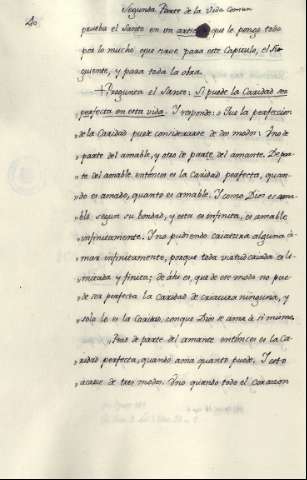 40
Segunda Parte de la Vida Comun
prueba el Santo en un que le pongo todo
por lo mucho, que nace para este Capitulo, el Si-
guiente, y para toda la obra.
+ Pregunta el Santo: Si puede la Caridad ser
perfecta en esta vida. Y responde: Que la perfeccion
„de la Caridad puede considerarse de dos modos: Uno de
„parte del amable, y otro de parte del amante. De par-
„te del amable entónces es la Caridad perfecta, quan-
„do es amado, quanto es amable. Y como Dios es ama-
„ble segun su bondad, y esta es infinita, es amable
„infinitamente. Y no pudiendo criatura alguna a-
„mar infinitamente, porque toda virtud criada es li-
„mitada y finita; de ahi es, que de ese modo no pue-
„de ser perfecta la Caridad de criatura ninguna, y
„solo lo es la Caridad, con que Dios se ama á si mismo.
„Pero de parte del amante entónces es la Ca-
„ridad perfecta, quando ama quanto puede. Y esto
„acaece de tres modos. Uno quando todo el corazon